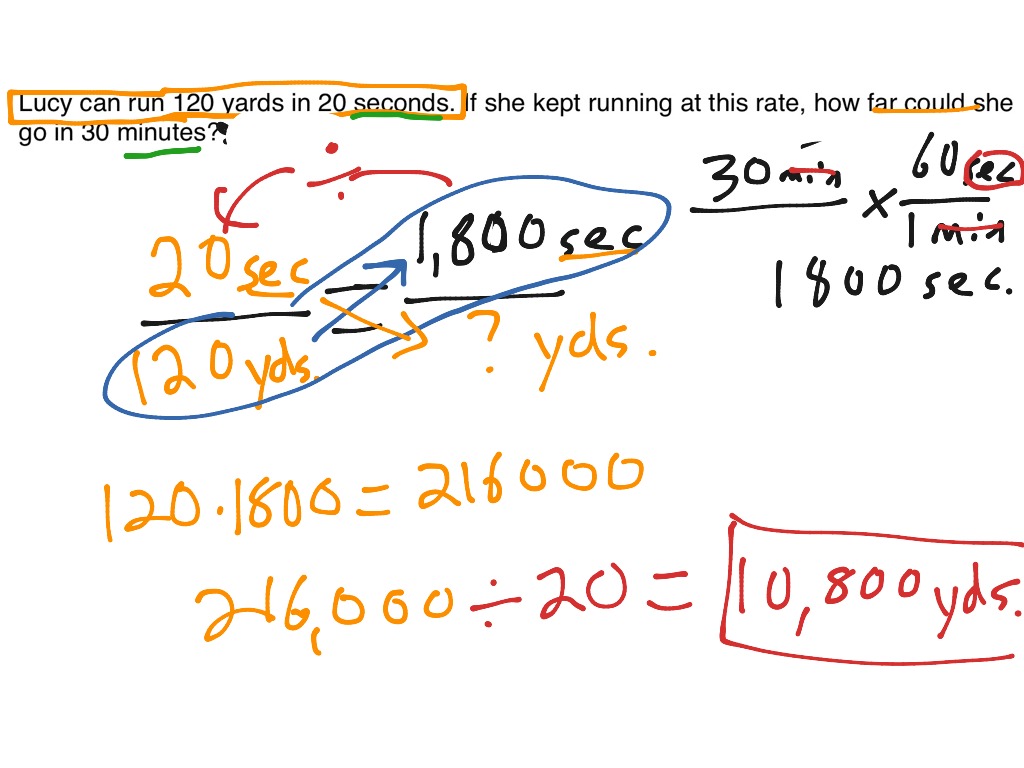 Lucy can run 120 yards in 20 seconds. If she kept running at this rate, how far could she
go in 30 minutes??
30 min × 60 sec
1 min
1800 sec.
÷
20 sec = 1,800 sec
120 yds. ? yds.
120 · 1800 = 216000
216,000 ÷ 20 = 10,800 yds.